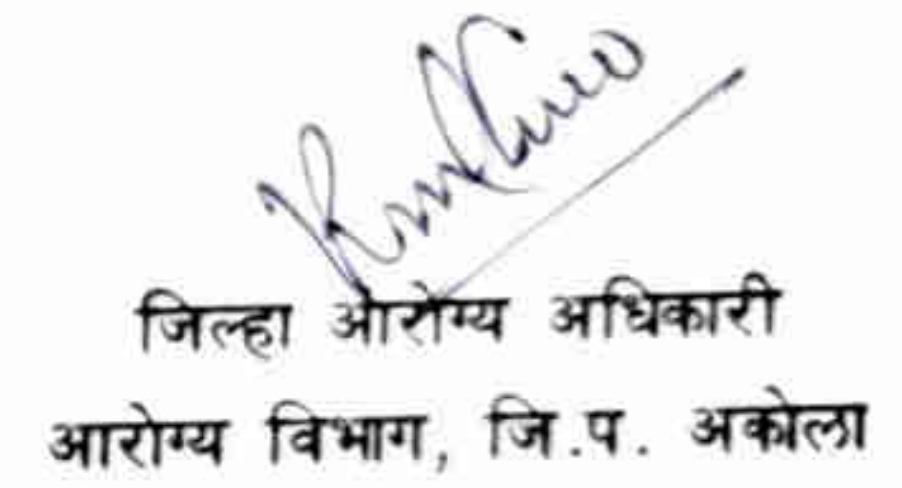 जिल्हा आरोग्य अधिकारी
आरोग्य विभाग, जि.प. अकोला